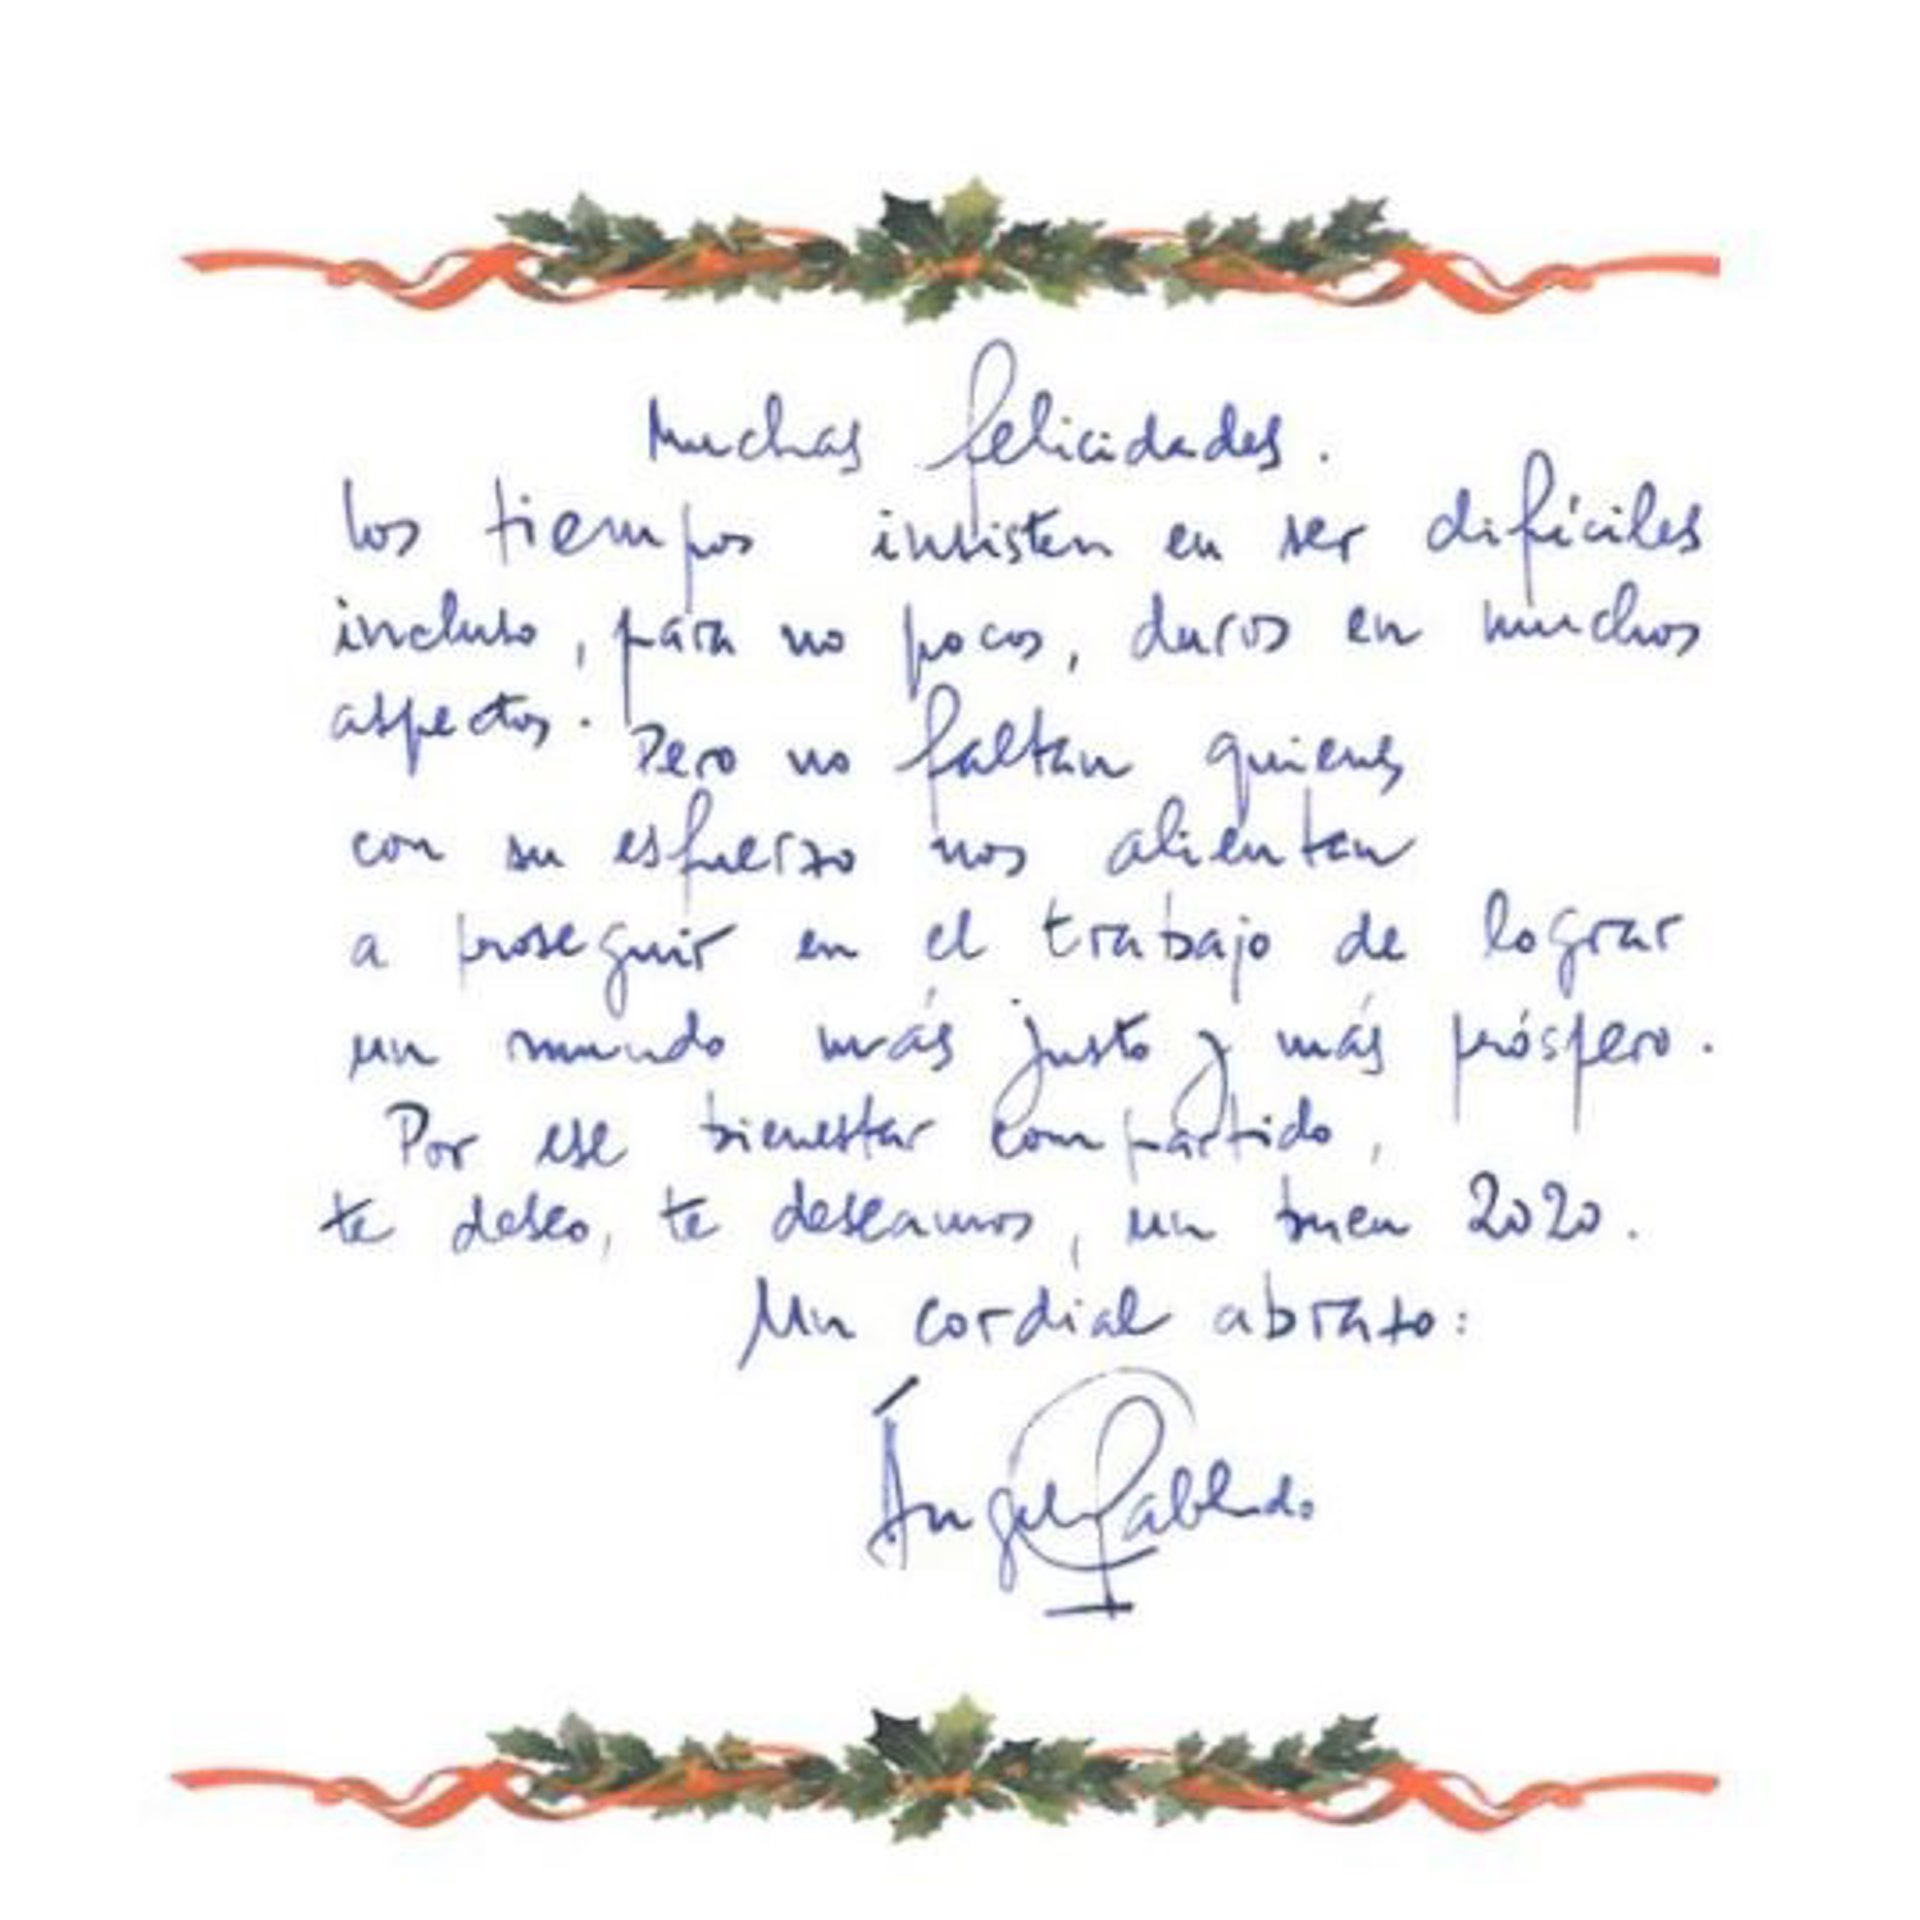 Muchas felicidades.
Los tiempos insisten en ser difíciles
incluso, para no pocos, duros en muchos
aspectos. Pero no faltan quienes
con su esfuerzo nos alientan
a proseguir en el trabajo de lograr
un mundo más justo y más próspero.
Por ese bienestar compartido,
te deseo, te deseamos, un buen 2020.
Un cordial abrazo:
Ángel Gabilondo